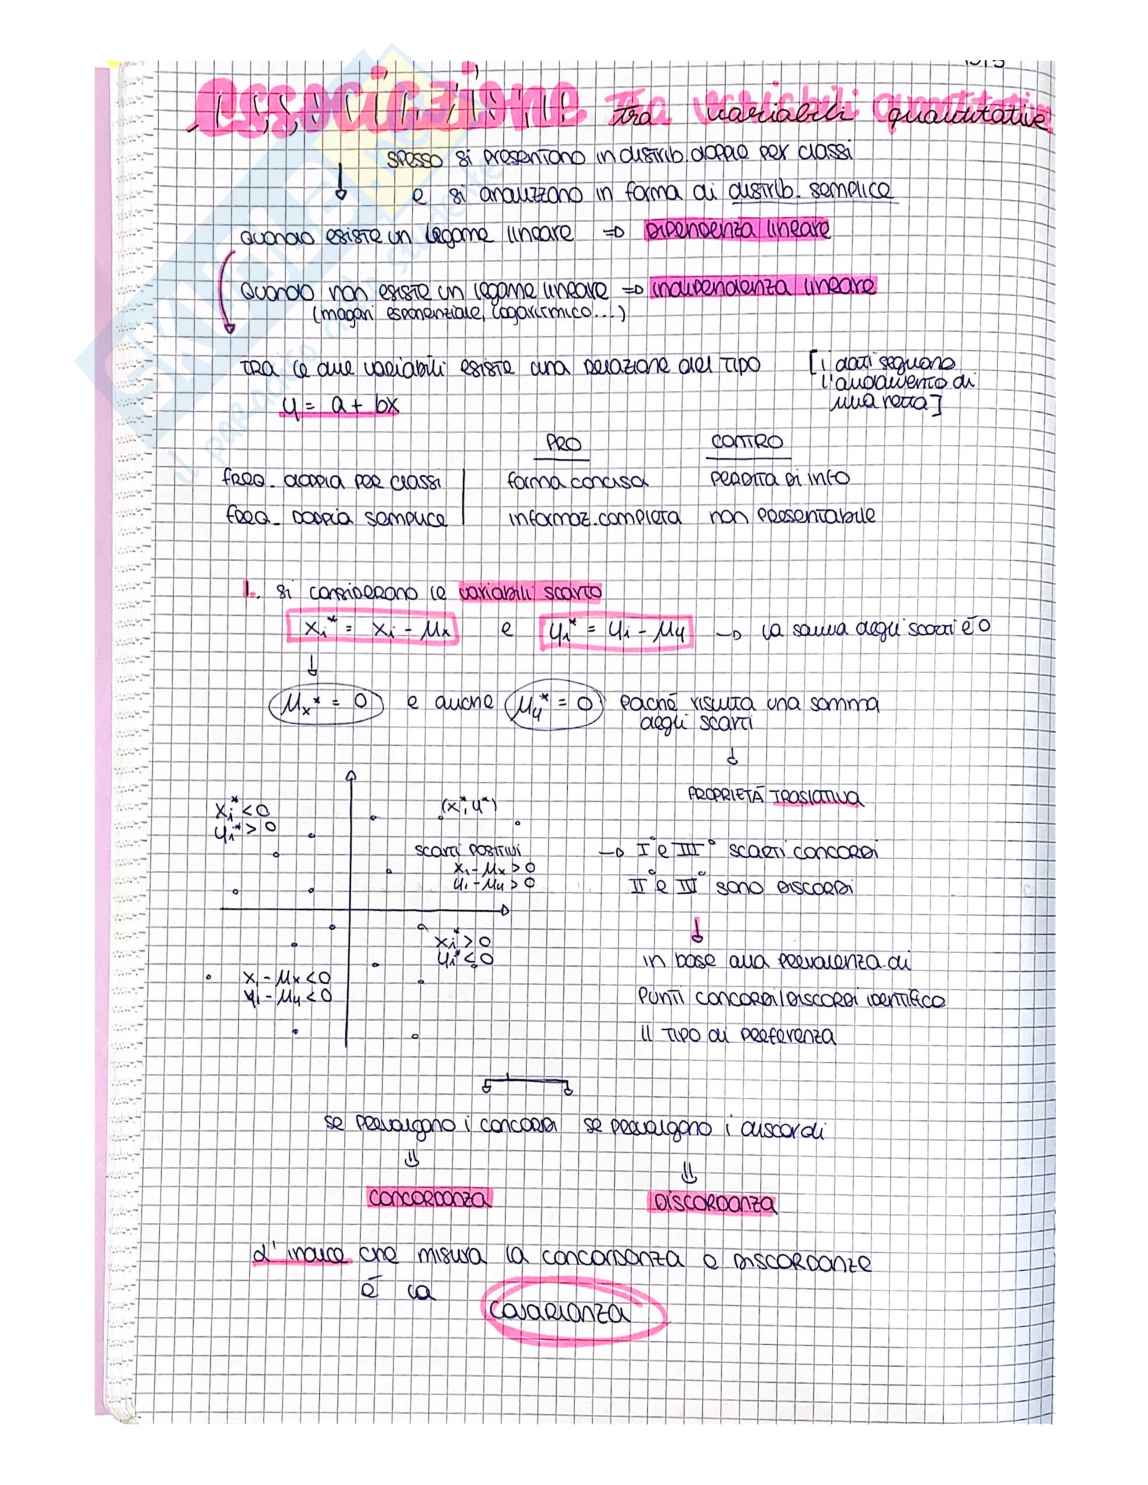 associazione tra variabili quantitative
spesso si presentano in distrib. doppie per classi
e si analizzano in forma di distrib. semplice
quando esiste un legame lineare => Dipendenza lineare
Quando non esiste un legame lineare => indipendenza lineare
(magari esponenziale, logaritmico...)
TRA le due variabili esiste una relazione del tipo [i dati seguono
l'andamento di
una retta]
y = a + bx
PRO CONTRO
freq. doppia per classi forma concisa perdita di info
freq. doppia semplice informaz. completa non presentabile
1. si considerano le variabili scarto
xi* = xi - μx e yi* = yi - μy → la somma degli scarti è 0
↓
μx* = 0 e anche μy* = 0 perché risulta una somma
degli scarti
↓
PROPRIETÀ TRASLATIVA
xi* < 0
yi* > 0
(x*, y*)
scarti positivi
xi - μx > 0
yi - μy > 0
→ I° e III° scarti concordi
II° e IV° sono discordi
↓
xi* > 0
yi* < 0
xi - μx < 0
yi - μy < 0
in base alla prevalenza di
punti concordi/discordi identifico
il tipo di preferenza
se prevalgono i concordi se prevalgono i discordi
CONCORDANZA DISCORDANZA
L'indice che misura la concordanza e discordanze
è la covarianza